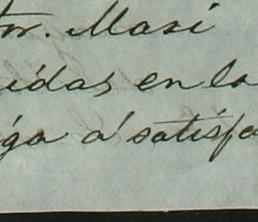 tor. Masi
uidas en la
ga á satisfa